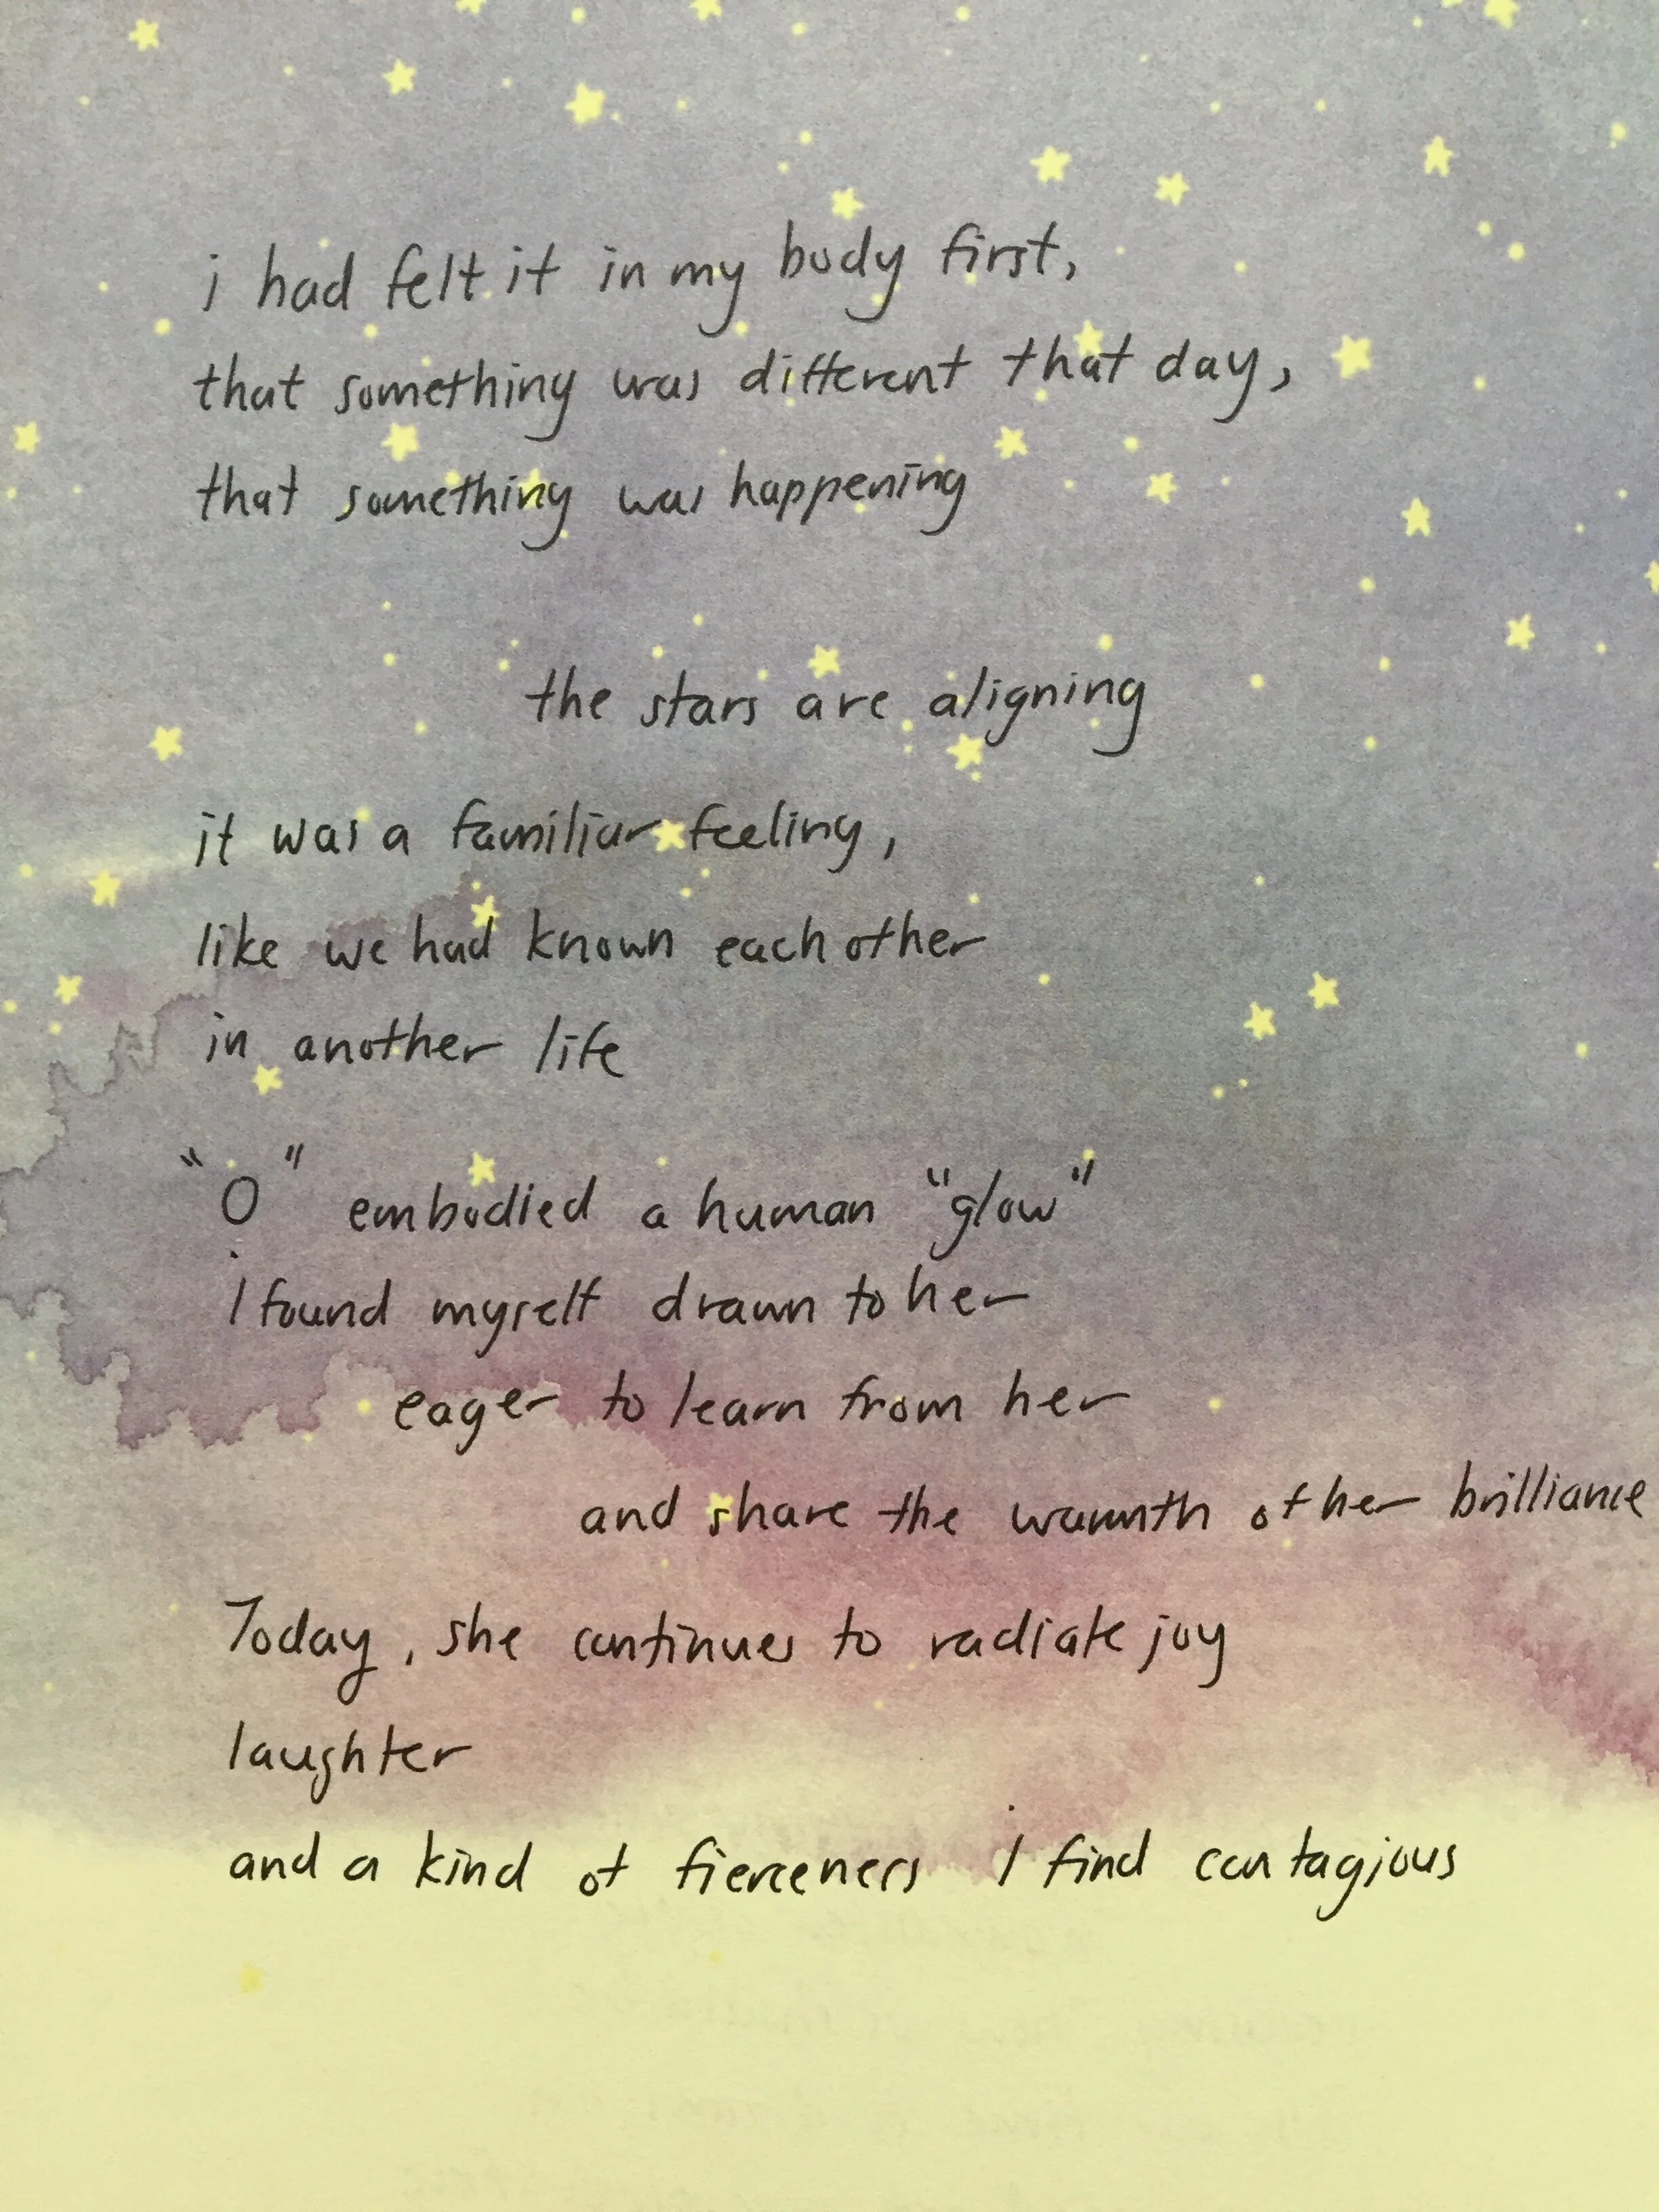 i had felt it in my body first,
that something was different that day,
that something was happening
the stars are aligning
it was a familiar feeling,
like we had known each other
in another life
"O" embodied a human "glow"
i found myself drawn to her
eager to learn from her
and share the warmth of her brilliance
Today, she continues to radiate joy
laughter
and a kind of fierceness i find contagious